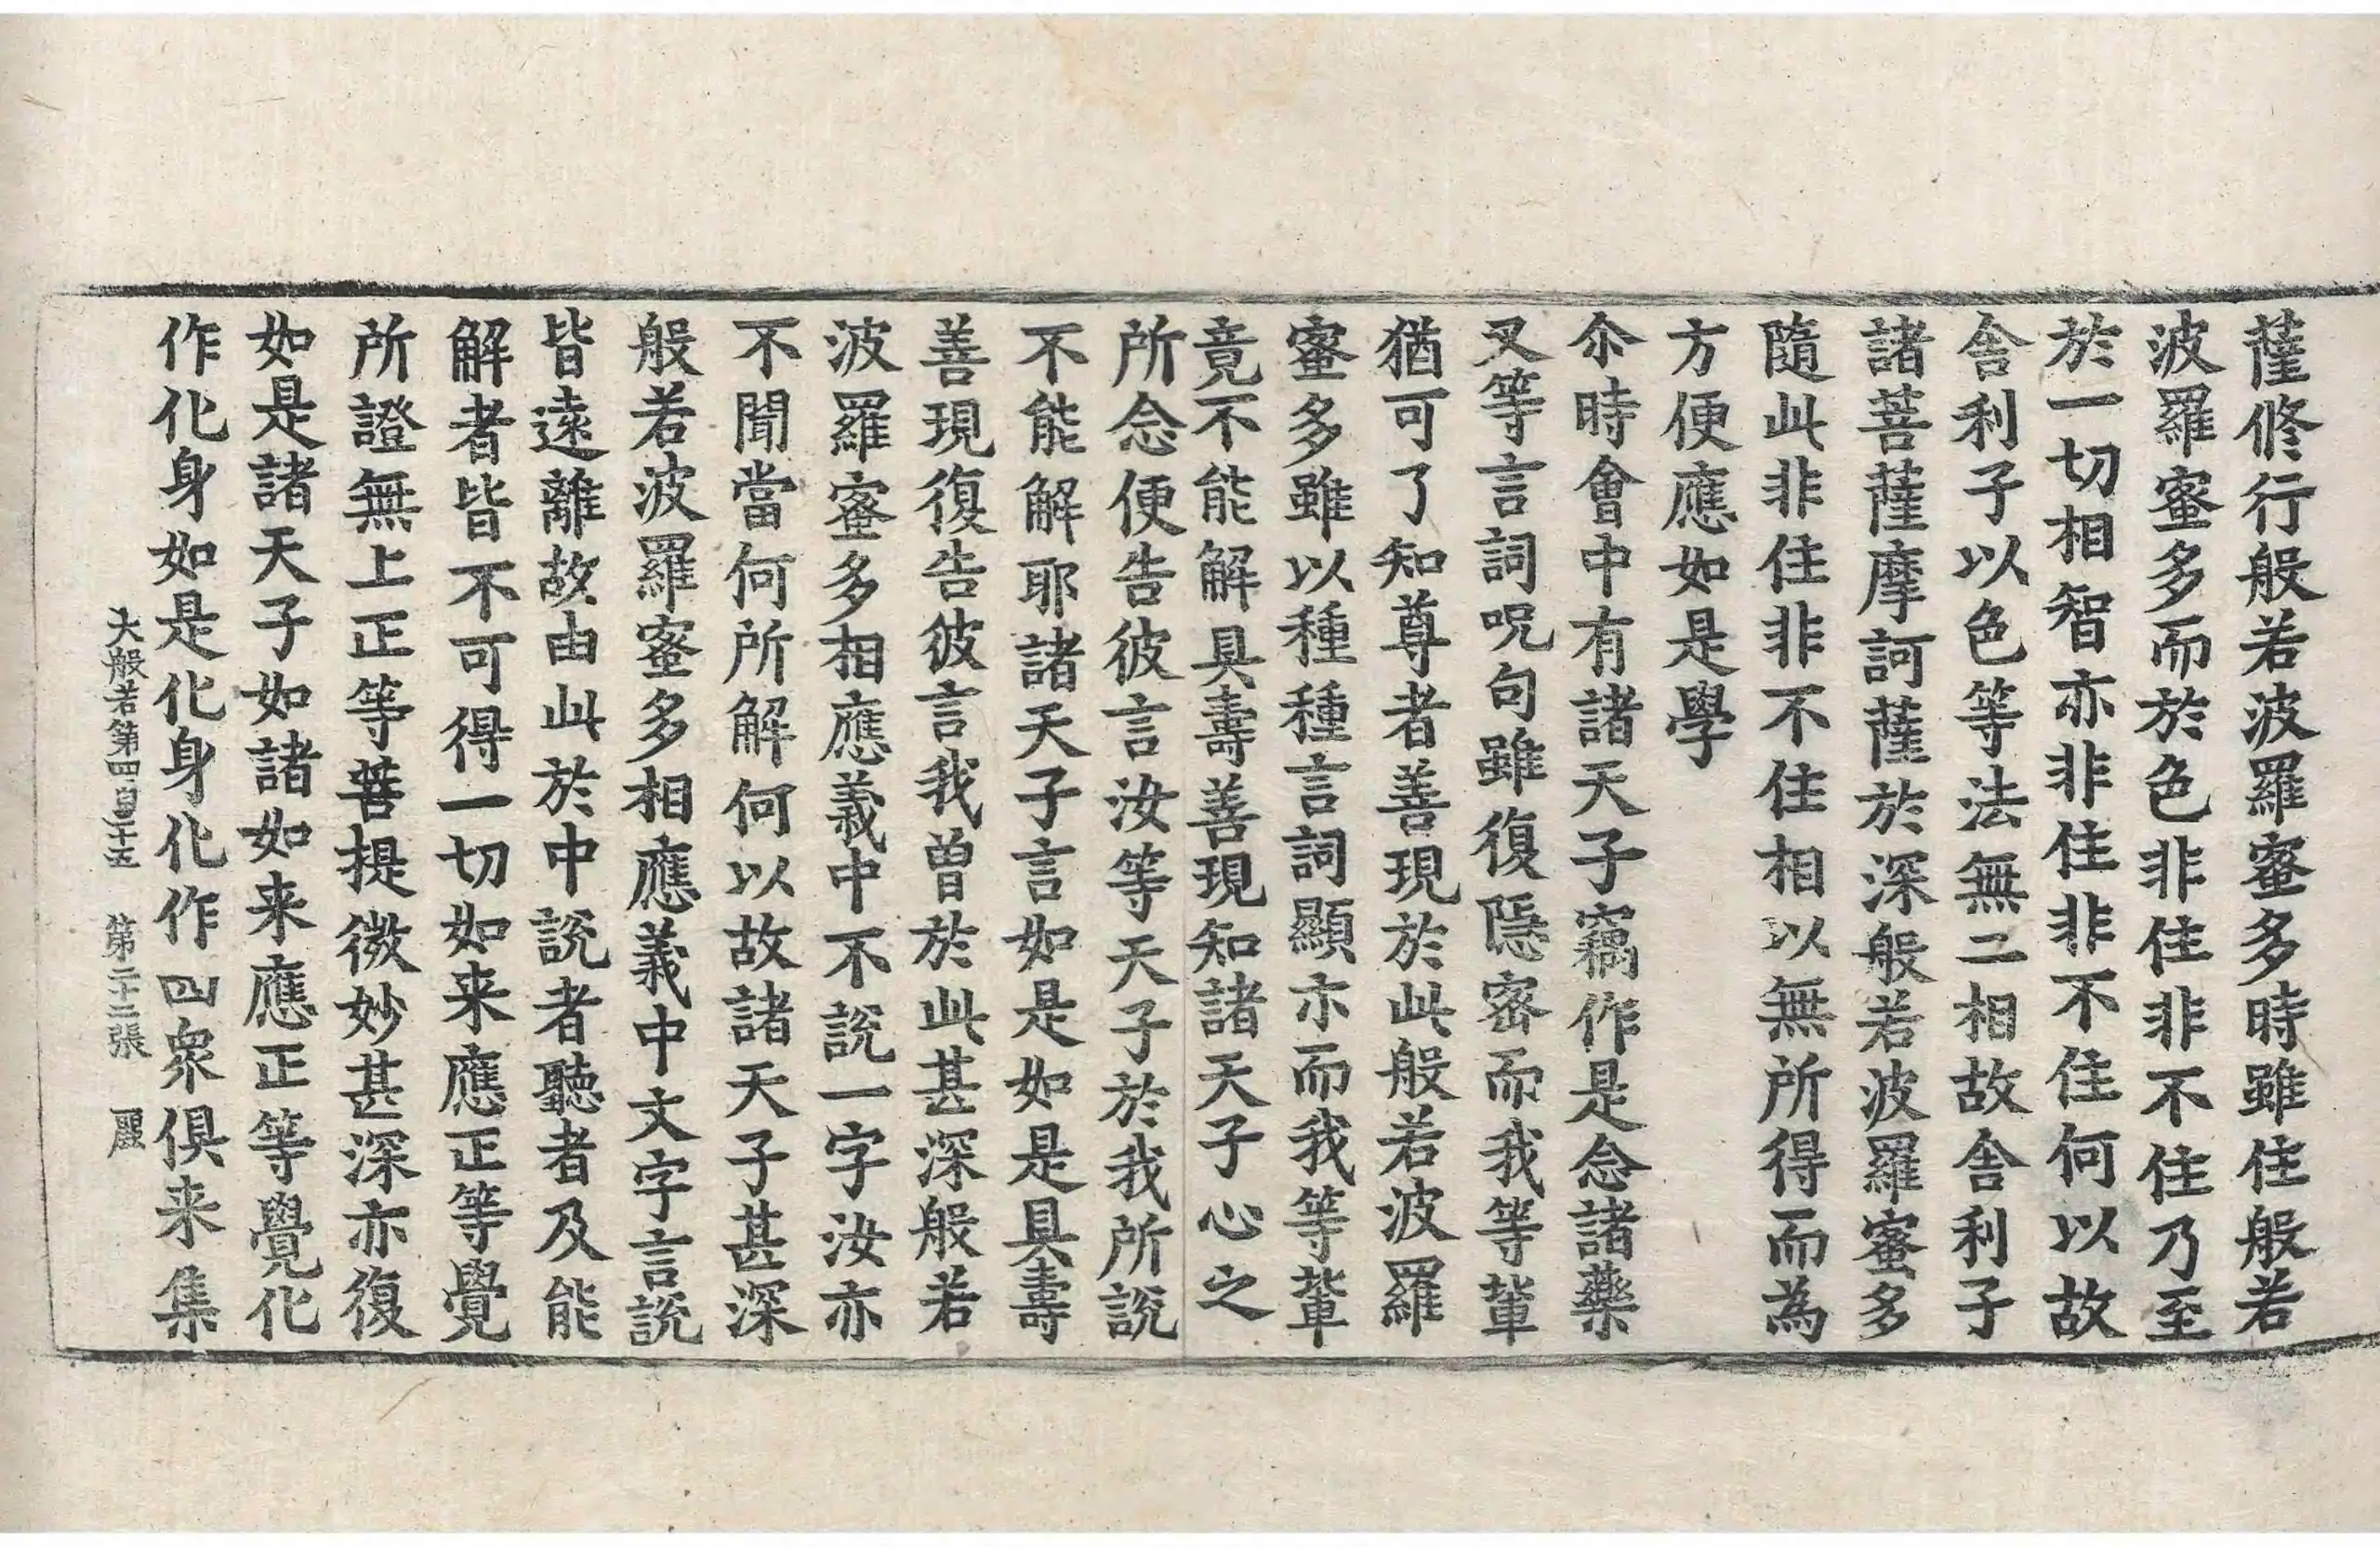 薩修行般若波羅蜜多時雖住般若
波羅蜜多而於色非住非不住乃至
於一切相智亦非住非不住何以故
舍利子以色等法無二相故舍利子
諸菩薩摩訶薩於深般若波羅蜜多
隨此非住非不住相以無所得而為
方便應如是學
尒時會中有諸天子竊作是念諸藥
叉等言詞呪句雖復隱密而我等輩
猶可了知尊者善現於此般若波羅
蜜多雖以種種言詞顯示而我等輩
竟不能解具壽善現知諸天子心之
所念便告彼言汝等天子於我所說
不能解耶諸天子言如是如是具壽
善現復告彼言我曾於此甚深般若
波羅蜜多相應義中不說一字汝亦
不聞當何所解何以故諸天子甚深
般若波羅蜜多相應義中文字言說
皆遠離故由此於中說者聽者及能
解者皆不可得一切如来應正等覺
所證無上正等菩提微妙甚深亦復
如是諸天子如諸如来應正等覺化
作化身如是化身化作四衆俱来集
大般若第四百二十五 第二十三張 麗